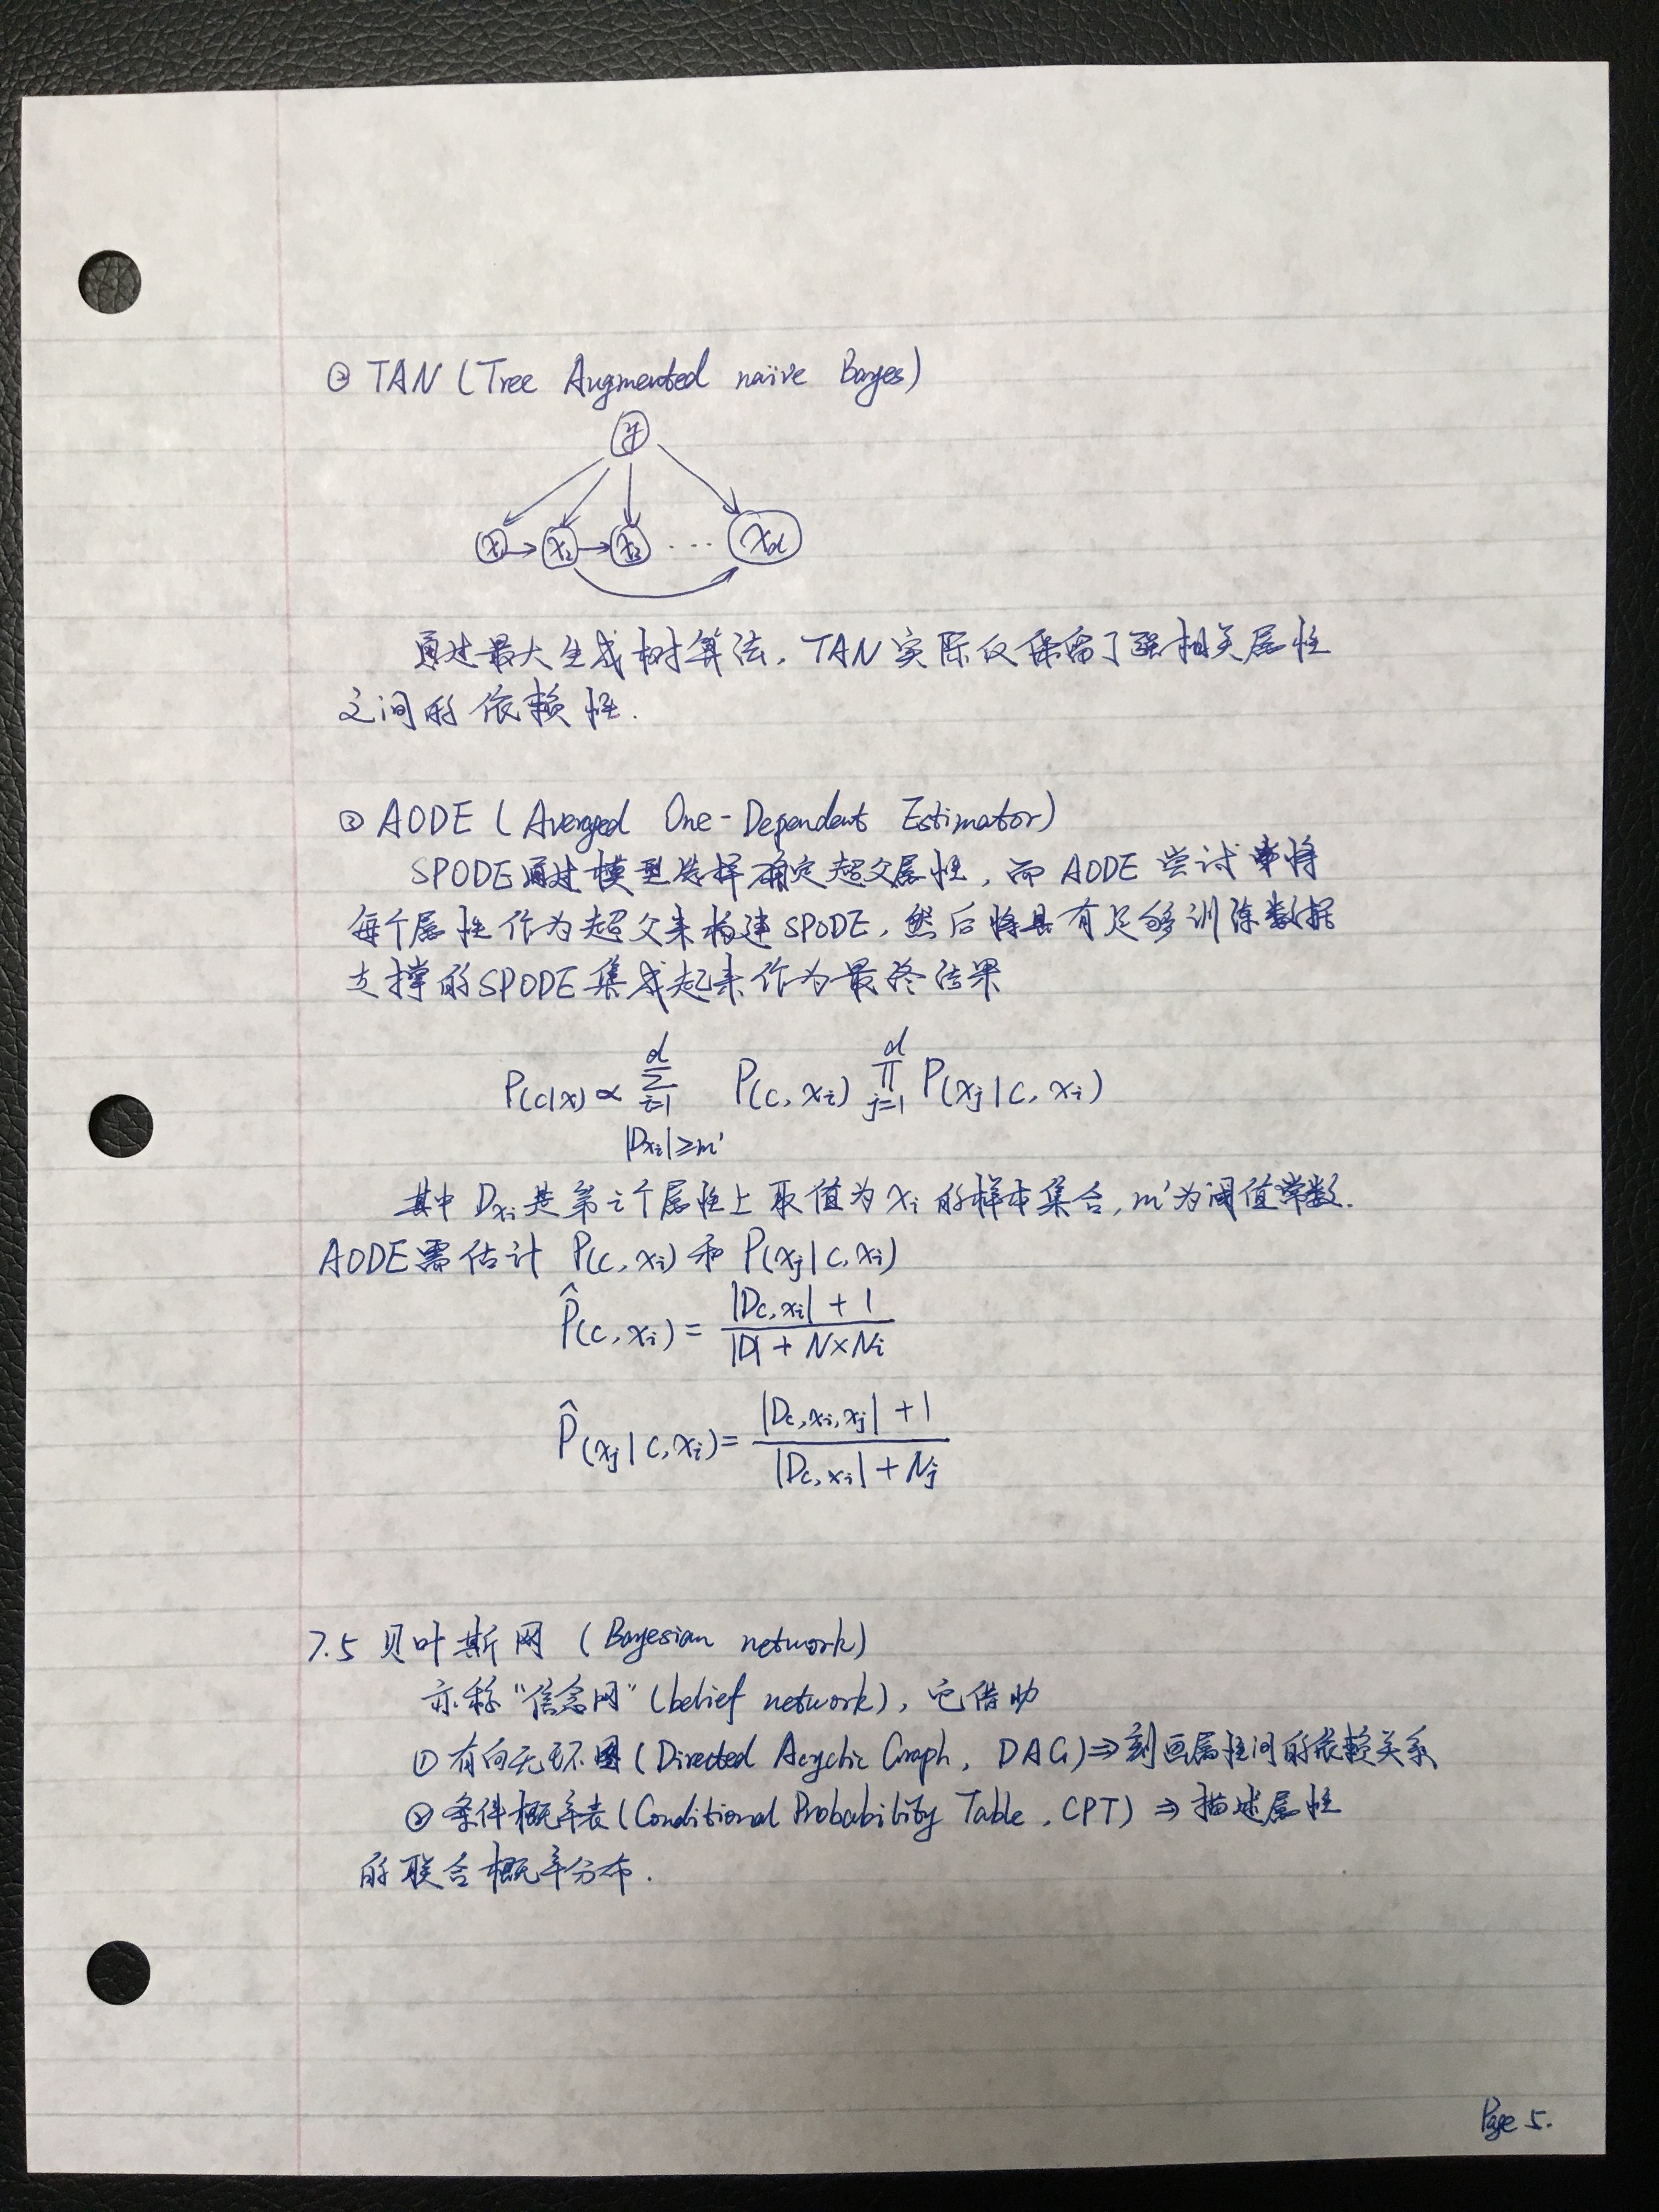 ② TAN (Tree Augmented naïve Bayes)
y
x₁ → x₂ → x₃ ... x_d
通过最大生成树算法, TAN 实际仅保留了强相关属性
之间的依赖性.
③ AODE (Averaged One-Dependent Estimator)
SPODE通过模型选择确定超父属性, 而 AODE 尝试将
每个属性作为超父来构建SPODE, 然后将具有足够训练数据
支撑的SPODE集成起来作为最终结果
P(c|x) ∝ ∑_{i=1}^{d} P(c, xᵢ) ∏_{j=1}^{d} P(xⱼ | c, xᵢ)
|D_{xᵢ}| ≥ m'
其中 D_{xᵢ} 是第 i 个属性上取值为 xᵢ 的样本集合, m' 为阈值常数.
AODE需估计 P(c, xᵢ) 和 P(xⱼ | c, xᵢ)
P̂(c, xᵢ) = (|D_{c, xᵢ}| + 1) / (|D| + N×Nᵢ)
P̂(xⱼ | c, xᵢ) = (|D_{c, xᵢ, xⱼ}| + 1) / (|D_{c, xᵢ}| + Nⱼ)
7.5 贝叶斯网 (Bayesian network)
亦称"信念网" (belief network), 它借助
① 有向无环图 (Directed Acyclic Graph, DAG) ⇒ 刻画属性间的依赖关系
② 条件概率表 (Conditional Probability Table, CPT) ⇒ 描述属性
的联合概率分布.
Page 5.